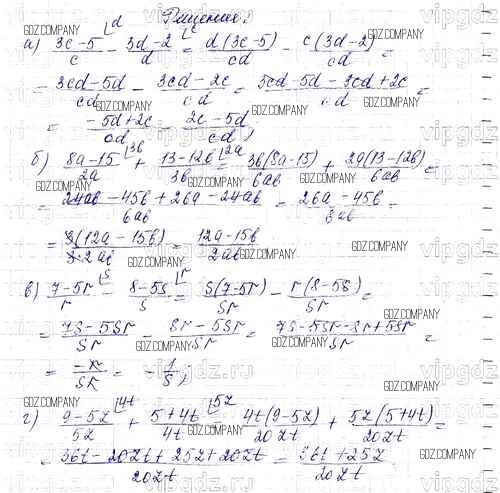 Решение.
а) (3c-5)/c - (3d-2)/d = (d(3c-5))/cd - (c(3d-2))/cd =
= (3cd-5d)/cd - (3cd-2c)/cd = (3cd-5d-3cd+2c)/cd =
= (-5d+2c)/cd = (2c-5d)/cd;
б) (8a-15)/2a + (13-12b)/3b = (3b(8a-15))/6ab + (2a(13-12b))/6ab =
= (24ab-45b+26a-24ab)/6ab = (26a-45b)/6ab =
= (3(12a-15b))/(3·2ab) = (12a-15b)/2ab
в) (7-5r)/r - (8-5s)/s = (s(7-5r))/sr - (r(8-5s))/sr =
= (7s-5sr)/sr - (8r-5sr)/sr = (7s-5sr-8r+5sr)/sr =
= = -1/s;
г) (9-5z)/5z + (5+4t)/4t = (4t(9-5z))/20zt + (5z(5+4t))/20zt =
= (36t-20zt+25z+20zt)/20zt = (36t+25z)/20zt
GDZ.COMPANY
vipgdz.ru